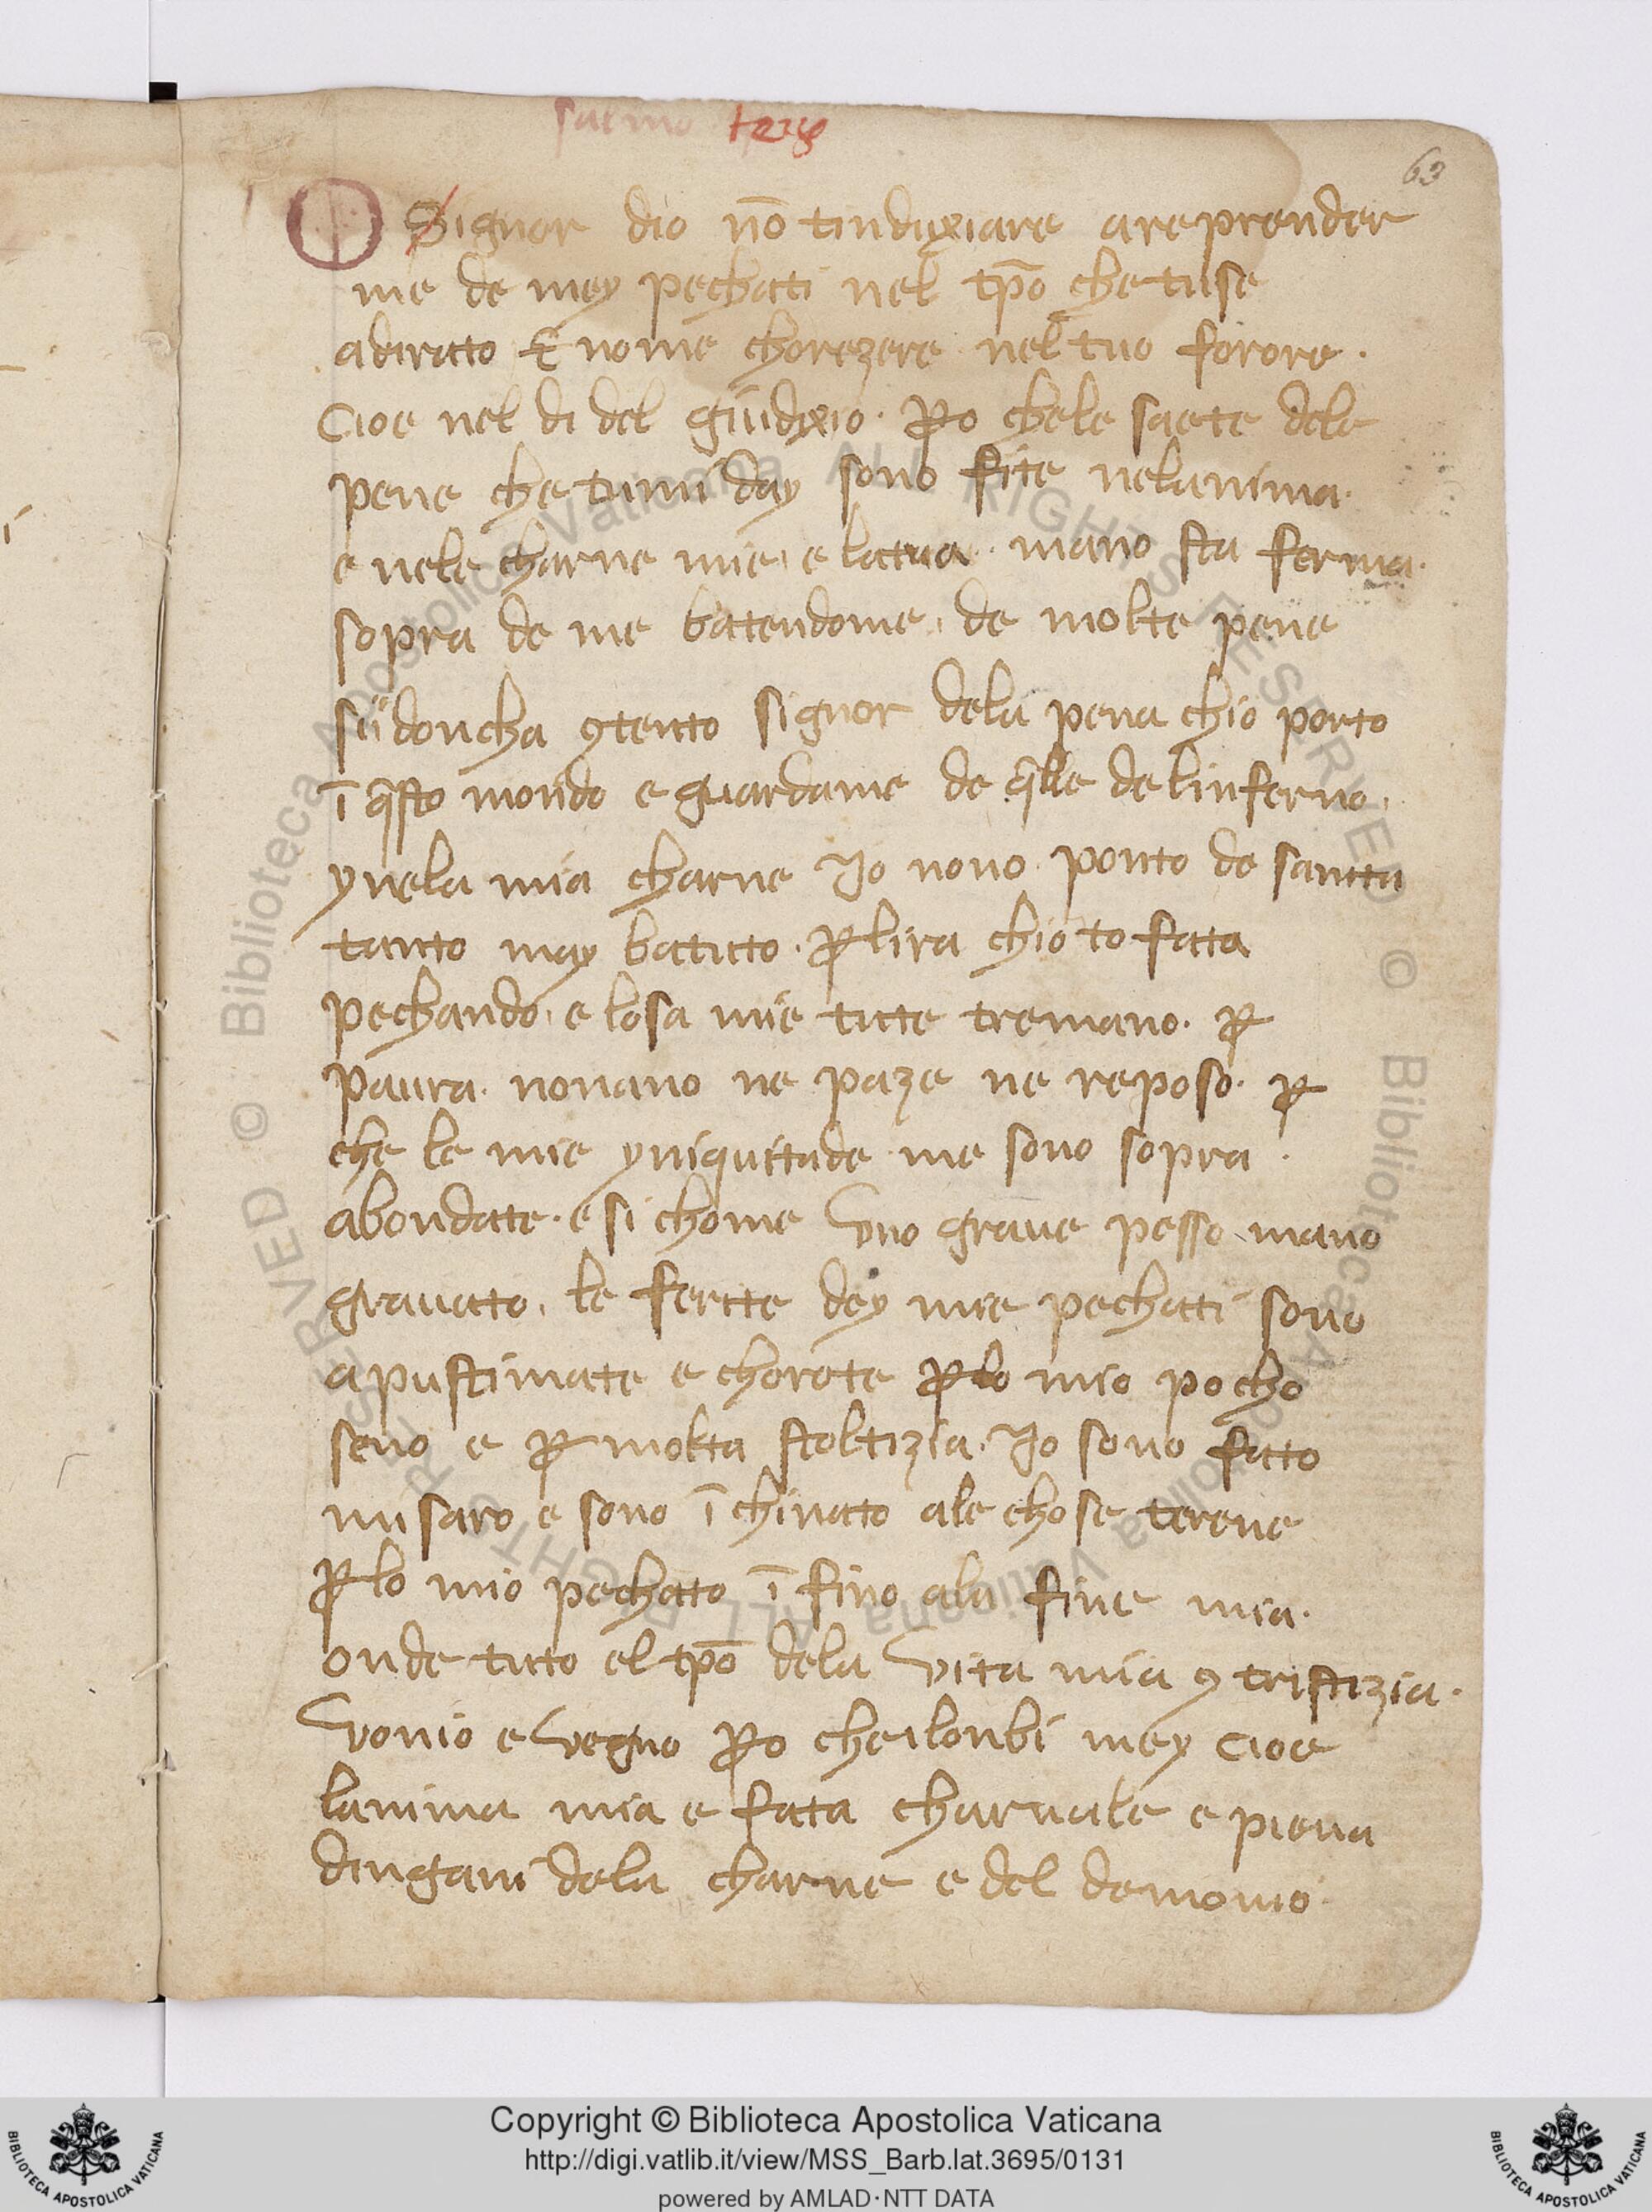 salmo terzo
63
O Signor dio nō tinduxiare areprender
me de mey pechatti nel tp̄o che tu se
adiratto E nome chorezere nel tuo forore .
Cioe nel di del giudixio . ꝑo chele saete dele
pene che tumi day sono fite nelanima .
e nele charne mie . e latua . mano sta ferma .
sopra de me batendome . de molte pene
sii doncha ꝯtento signor dela pena chio porto
ī q̄sto mondo e guardame de q̄lle delinferno .
ynela mia charne Jo nono ponto de sanitta
tanto may batuto . ꝑ lira chio to fata
pechando . e losa mie tute tremano . ꝑ
paura . nonano ne paze ne reposo . ꝑ
che le mie yniquittade me sono sopra .
abondate . e si chome vno graue pesso mano
grauato . le feritte dey mie pechatti sono
apustimate e chorote ꝑ lo mio pocho
seno e ꝑ molta stoltizia . Jo sono fatto
misaro e sono ī chinato ale chose terene
ꝑ lo mio pechato ī fino ala fine mia .
onde tuto el tp̄o dela vita mia ꝯ tristizia .
vonio e vegno ꝑo cheilonbi mey Cioe
lanima mia e fata charnale e piena
dingani dela charne e del demonio
Copyright © Biblioteca Apostolica Vaticana
http://digi.vatlib.it/view/MSS_Barb.lat.3695/0131
powered by AMLAD·NTT DATA
BIBLIOTECA APOSTOLICA VATICANA
BIBLIOTECA APOSTOLICA VATICANA
© Biblioteca Apostolica Vaticana ALL RIGHTS RESERVED © Biblioteca Apostolica Vaticana ALL RIGHTS RESERVED